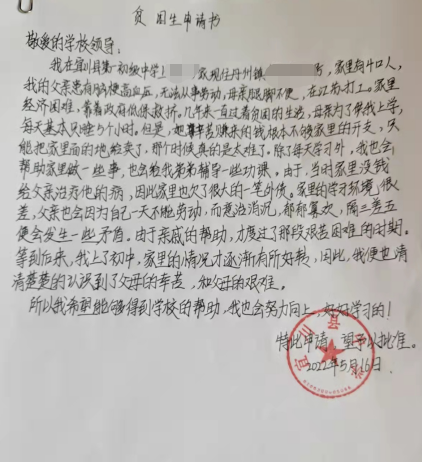 贫困生申请书
敬爱的学校领导:
我在宜川县第一初级中学 家现住丹州镇 号,家里有4口人,
我的父亲患有 高血压,无法从事劳动,母亲腿脚不便,在 打工。家里
经济困难,靠着政府低保救济。几年来一直过着贫困的生活,母亲为了供我上学,
每天基本只睡5个小时。但是,把辛辛苦赚来的钱根本不够家里的开支,只
能把家里面的地给卖了,那个时候真的是太难了,除了每天学习外,我也会
帮助家里做一些事,也会给我弟弟辅导一些功课。由于,当时家里没钱
给父亲治疗他的病,因此家里也欠了很大的一笔外债。家里的学习环境,很
差,父亲也会因为自己一天不能劳动,而意志消沉,郁郁寡欢,隔三差五
便会发生一些矛盾。由于亲戚的帮助,才度过了那段艰苦困难的时期。
等到后来,我上了初中,家里的情况才逐渐有所好转,因此,我便也清
清楚楚的认识到了父母的辛苦,和父母的艰难。
所以我希望能够得到学校的帮助,我也会努力向上,好好学习的!
特此申请,望予以批准。
2022年5月16日.